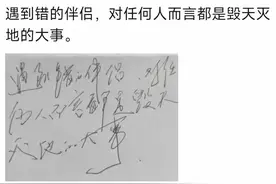 遇到错的伴侣，对任何人而言都是毁天灭
地的大事。
遇到错的伴侣 对任
何人而言都是毁天
灭地的大事